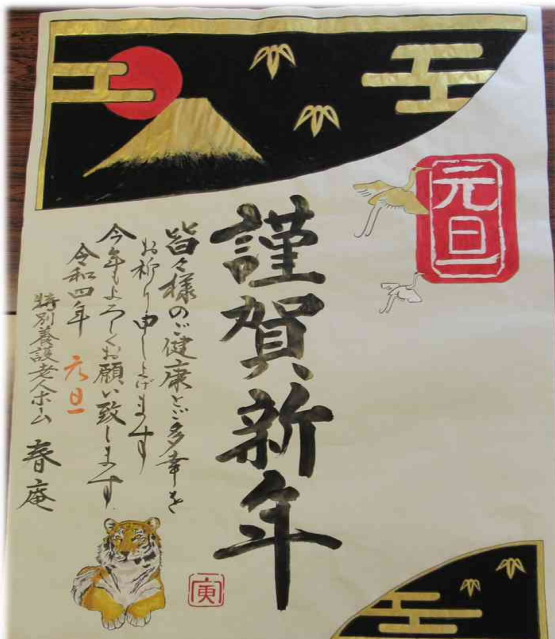 元旦
謹賀新年
皆々様のご健康とご多幸を
お祈り申し上げます
今年もよろしくお願い致します
令和四年 元旦
特別養護老人ホーム 春庵
寅